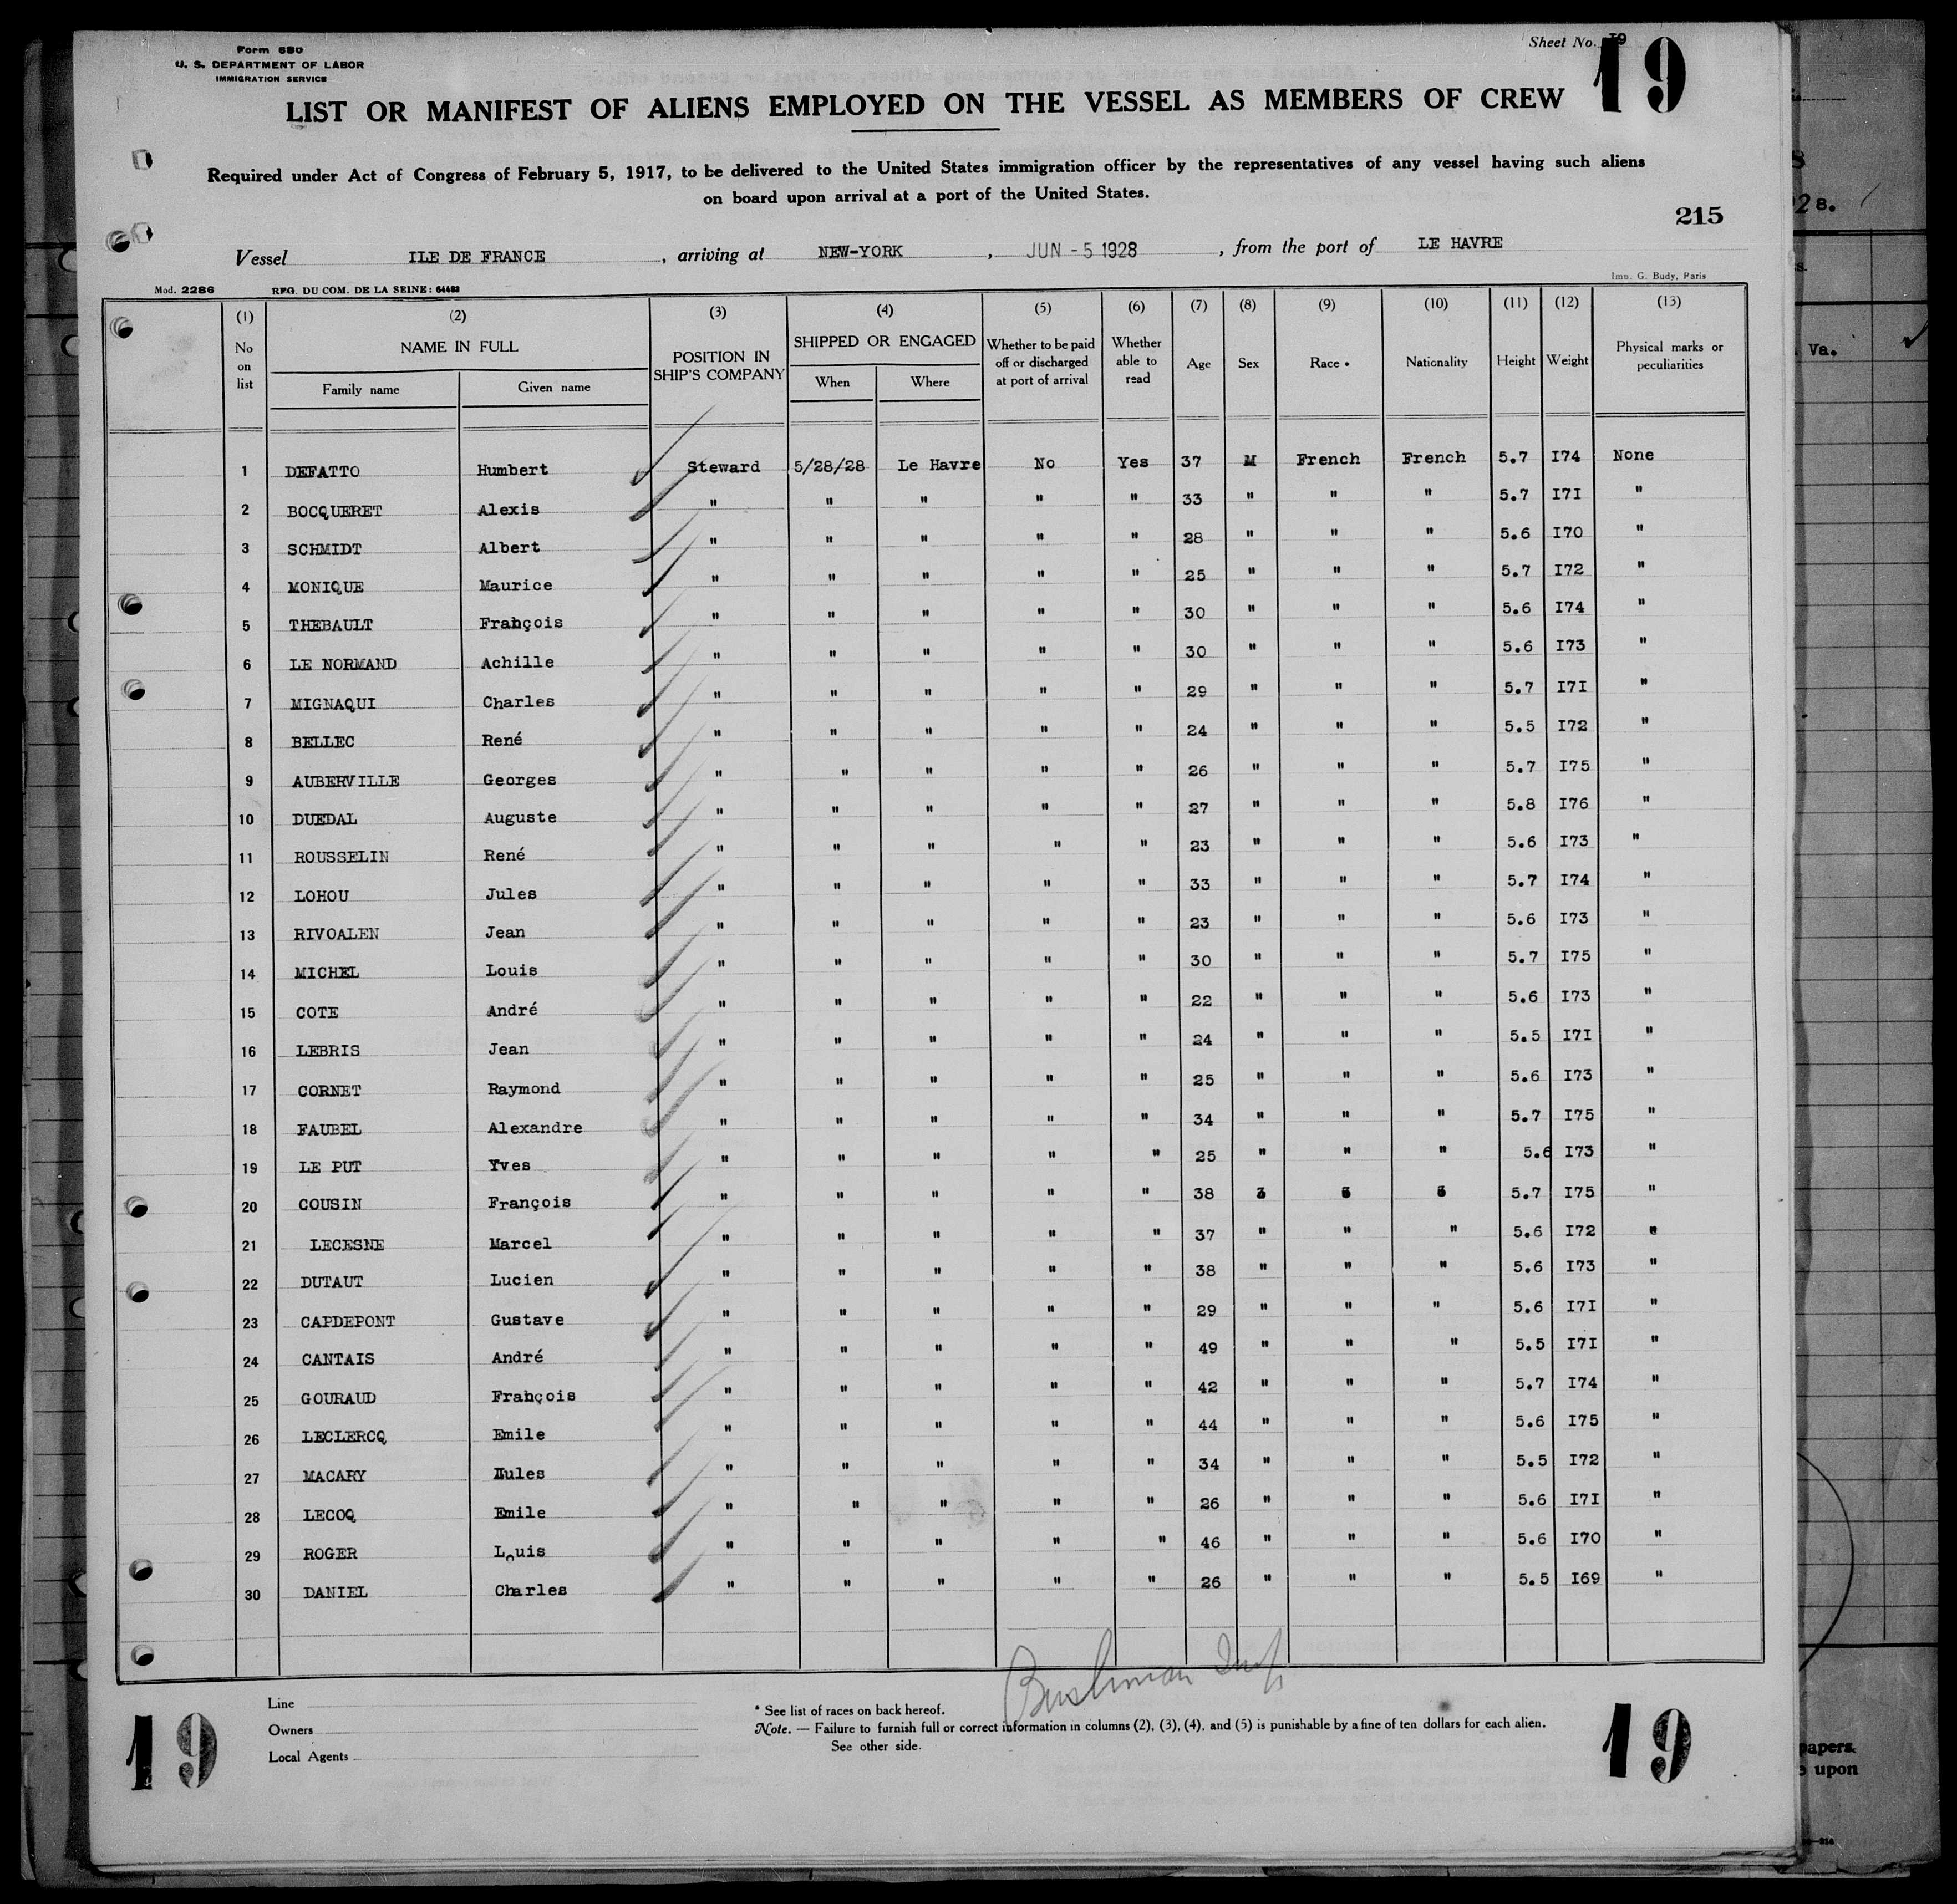 Form 680
U. S. DEPARTMENT OF LABOR
IMMIGRATION SERVICE
Sheet No. 19
19
LIST OR MANIFEST OF ALIENS EMPLOYED ON THE VESSEL AS MEMBERS OF CREW
Required under Act of Congress of February 5, 1917, to be delivered to the United States immigration officer by the representatives of any vessel having such aliens
on board upon arrival at a port of the United States.
215
Vessel ILE DE FRANCE , arriving at NEW-YORK , JUN - 5 1928 , from the port of LE HAVRE
Mod. 2286 REG. DU COM. DE LA SEINE: 64483 Imp. G. Budy, Paris
(1) (2) (3) (4) (5) (6) (7) (8) (9) (10) (11) (12) (13)
No on list NAME IN FULL Family name Given name POSITION IN SHIP'S COMPANY SHIPPED OR ENGAGED When Where Whether to be paid off or discharged at port of arrival Whether able to read Age Sex Race * Nationality Height Weight Physical marks or peculiarities
1 DEFATTO Humbert Steward 5/28/28 Le Havre No Yes 37 M French French 5.7 I74 None
2 BOCQUERET Alexis " " " " " 33 " " " 5.7 I7I "
3 SCHMIDT Albert " " " " " 28 " " " 5.6 I70 "
4 MONIQUE Maurice " " " " " 25 " " " 5.7 I72 "
5 THEBAULT François " " " " " 30 " " " 5.6 I74 "
6 LE NORMAND Achille " " " " " 30 " " " 5.6 I73 "
7 MIGNAQUI Charles " " " " " 29 " " " 5.7 I7I "
8 BELLEC René " " " " " 24 " " " 5.5 I72 "
9 AUBERVILLE Georges " " " " " 26 " " " 5.7 I75 "
10 DUEDAL Auguste " " " " " 27 " " " 5.8 I76 "
11 ROUSSELIN René " " " " " 23 " " " 5.6 I73 "
12 LOHOU Jules " " " " " 33 " " " 5.7 I74 "
13 RIVOALEN Jean " " " " " 23 " " " 5.6 I73 "
14 MICHEL Louis " " " " " 30 " " " 5.7 I75 "
15 COTE André " " " " " 22 " " " 5.6 I73 "
16 LEBRIS Jean " " " " " 24 " " " 5.5 I7I "
17 CORNET Raymond " " " " " 25 " " " 5.6 I73 "
18 FAUBEL Alexandre " " " " " 34 " " " 5.7 I75 "
19 LE PUT Yves " " " " " 25 " " " 5.6 I73 "
20 COUSIN François " " " " " 38 3 3 3 5.7 I75 "
21 LECESNE Marcel " " " " " 37 " " " 5.6 I72 "
22 DUTAUT Lucien " " " " " 38 " " " 5.6 I73 "
23 CAPDEPONT Gustave " " " " " 29 " " " 5.6 I7I "
24 CANTAIS André " " " " " 49 " " " 5.5 I7I "
25 GOURAUD François " " " " " 42 " " " 5.7 I74 "
26 LECLERCQ Emile " " " " " 44 " " " 5.6 I75 "
27 MACARY Jules " " " " " 34 " " " 5.5 I72 "
28 LECOQ Emile " " " " " 26 " " " 5.6 I7I "
29 ROGER Louis " " " " " 46 " " " 5.6 I70 "
30 DANIEL Charles " " " " " 26 " " " 5.5 I69 "
Line
Owners
Local Agents
* See list of races on back hereof.
Note. — Failure to furnish full or correct information in columns (2), (3), (4), and (5) is punishable by a fine of ten dollars for each alien.
See other side.
19
19
Va.
papers
upon